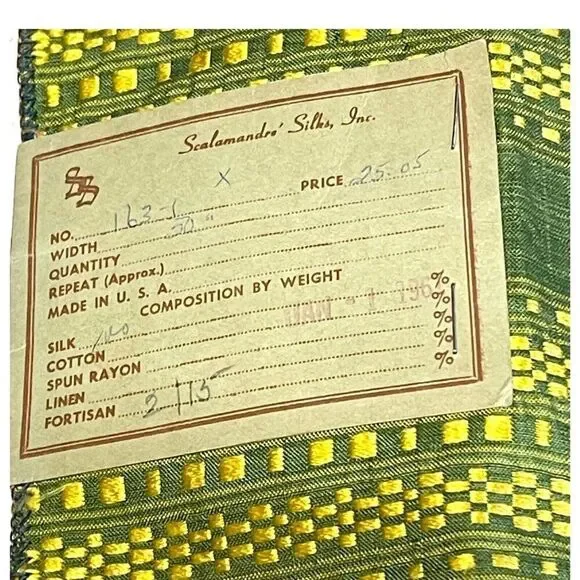 Scalamandré Silks, Inc.
SS
X
NO. 163-1 PRICE 25.05
WIDTH 50"
QUANTITY
REPEAT (Approx.)
MADE IN U. S. A.
COMPOSITION BY WEIGHT
SILK 100 %
COTTON %
SPUN RAYON %
LINEN %
FORTISAN 2/15 %